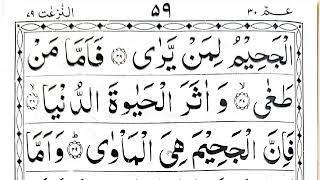 عـمّ ٣٠ ٥٩ النّٰزعٰت ٧٩
الْجَحِيْمُ لِمَنْ يَّرٰى ﴿٣٦﴾ فَاَمَّا مَنْ
طَغٰى ﴿٣٧﴾ وَ اٰثَرَ الْحَيٰوةَ الدُّنْيَا ﴿٣٨﴾
فَاِنَّ الْجَحِيْمَ هِىَ الْمَاْوٰى ﴿٣٩﴾ وَاَمَّا